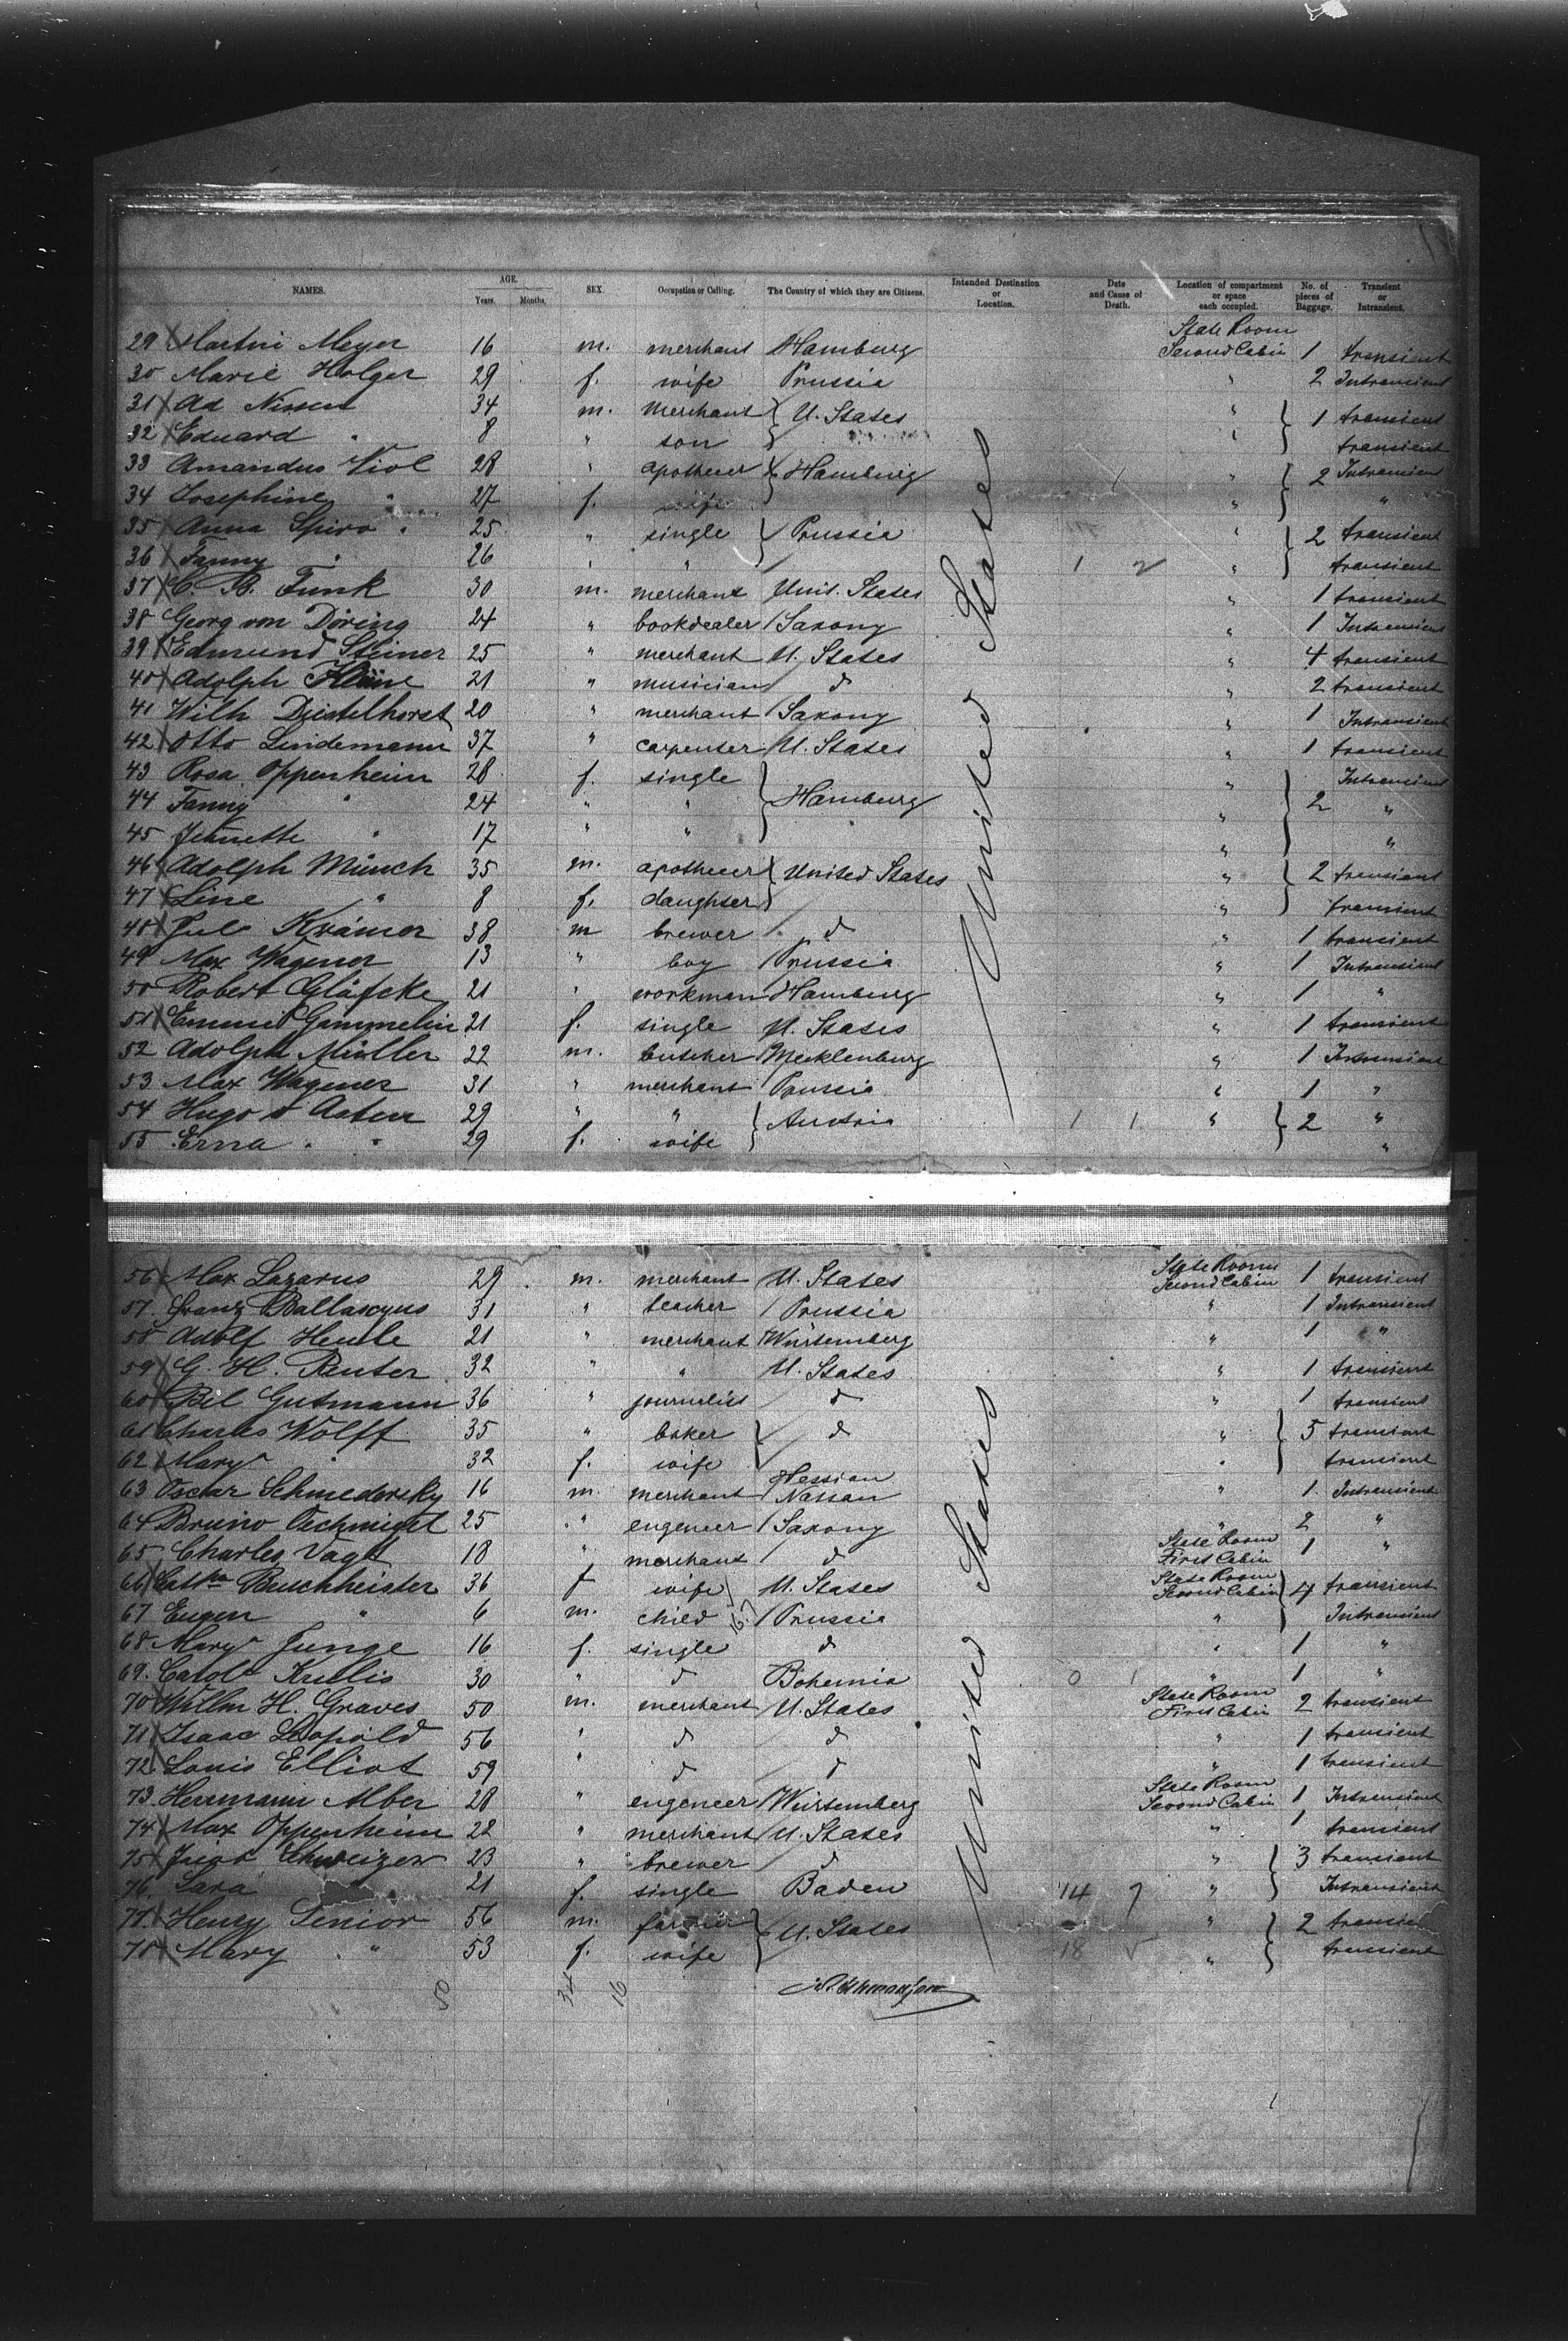 NAMES. AGE. Years. Months. SEX. Occupation or Calling. The Country of which they are Citizens. Intended Destination or Location. Date and Cause of Death. Location of compartment or space each occupied. No. of pieces of Baggage. Transient or Intransient.
29 Martin Meyer 16 m. merchant Hamburg State Room Second Cabin 1 transient
30 Marie Holger 29 f. wife Prussia " 2 Intransient
31 Ad Nissen 34 m. merchant U. States " 1 transient
32 Eduard " 8 " son " transient
33 Amandus Viol 28 " apothecer Hamburg " 2 Intransient
34 Josephine " 27 f. wife " "
35 Anna Spiro 25 " single Prussia " 2 transient
36 Fanny " 26 " " 1 2 " transient
37 C. B. Funk 30 m. merchant Unit. States " 1 transient
38 Georg von Döring 24 " bookdealer Saxony " 1 Intransient
39 Edmund Steiner 25 " merchant U. States " 4 transient
40 Adolph 21 " musician d " 2 transient
41 Wilh Diestelhorst 20 " merchant Saxony " 1 Intransient
42 Otto Lindemann 37 " carpenter U. States " 1 transient
43 Rosa Oppenheim 28 f. single Hamburg " 2 Intransient
44 Fanny " 24 " " " "
45 Jeanette " 17 " " " "
46 Adolph Münch 35 m. apothecer United States " 2 transient
47 Line " 8 f. daughter " transient
48 Jul Krämer 38 m brewer d " 1 transient
49 Max Wagener 13 " boy Prussia " 1 Intransient
50 Robert Gläfcke 21 " workman Hamburg " 1 "
51 Emma Gammelin 21 f. single U. States " 1 transient
52 Adolph Müller 22 m. butcher Mecklenburg " 1 Intransient
53 Max Wagener 31 " merchant Prussia " 1 "
54 Hugo v Asten 29 " " Austria 1 1 " 2 "
55 Erna " " 29 f. wife "
United States
56 Max Lazarus 29 m. merchant U. States State Room Second Cabin 1 transient
57. Franz Ballascyus 31 " teacher Prussia " 1 Intransient
58 Adolf Henle 21 " merchant Würtemberg " 1 "
59 G. H. Reuter 32 " " U. States " 1 transient
60 Bel Gutmann 36 " journalist d " 1 transient
61 Charles Wolff 35 " baker d " 5 transient
62 Mary " 32 f. wife " transient
63 Oscar Schmedersky 16 m. merchant Hessian Nassau " 1 Intransient
64 Bruno 25 " engeneer Saxony " 2 "
65 Charles Vagt 18 " merchant d State Room First Cabin 1 "
66 Cathn Buschheister 36 f wife U. States State Room Second Cabin 4 transient
67 Eugen " 6 m. child Prussia " Intransient
68 Mary Junge 16 f. single d " 1 "
69. Carol Krulis 30 " d Bohemia 0 1 " 1 "
70 Willm H. Graves 50 m. merchant U. States State Room First Cabin 2 transient
71 Isaac Leopold 56 " d d " 1 transient
72 Louis Elliot 59 " d d " 1 transient
73. Herrmann Alber 28 " engeneer Würtemberg State Room Second Cabin 1 Intransient
74 Max Oppenheim 22 " merchant U. States " 1 transient
75 Jacob Schweizer 23 " brewer d " 3 transient
76. Sara 21 f. single Baden 14 7 " Intransient
77. Henry Senior 56 m. farmer U. States " 2 transient
78 Mary " 53 f. wife 18 " transient
United States
50 34 16